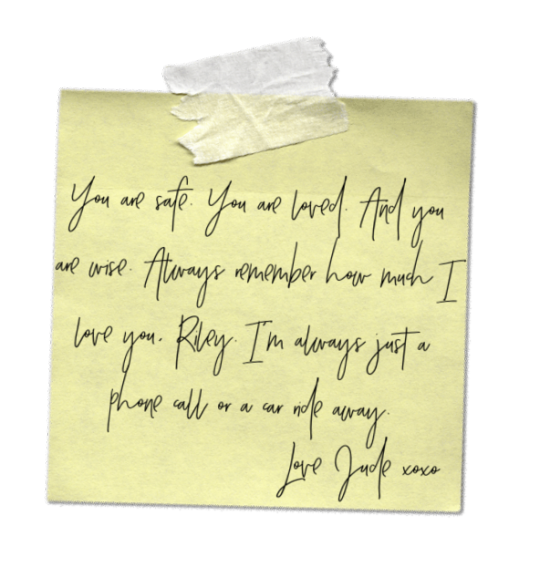 You are safe. You are loved. And you
are wise. Always remember how much I
love you, Riley. I'm always just a
phone call or a car ride away.
Love Jude xoxo